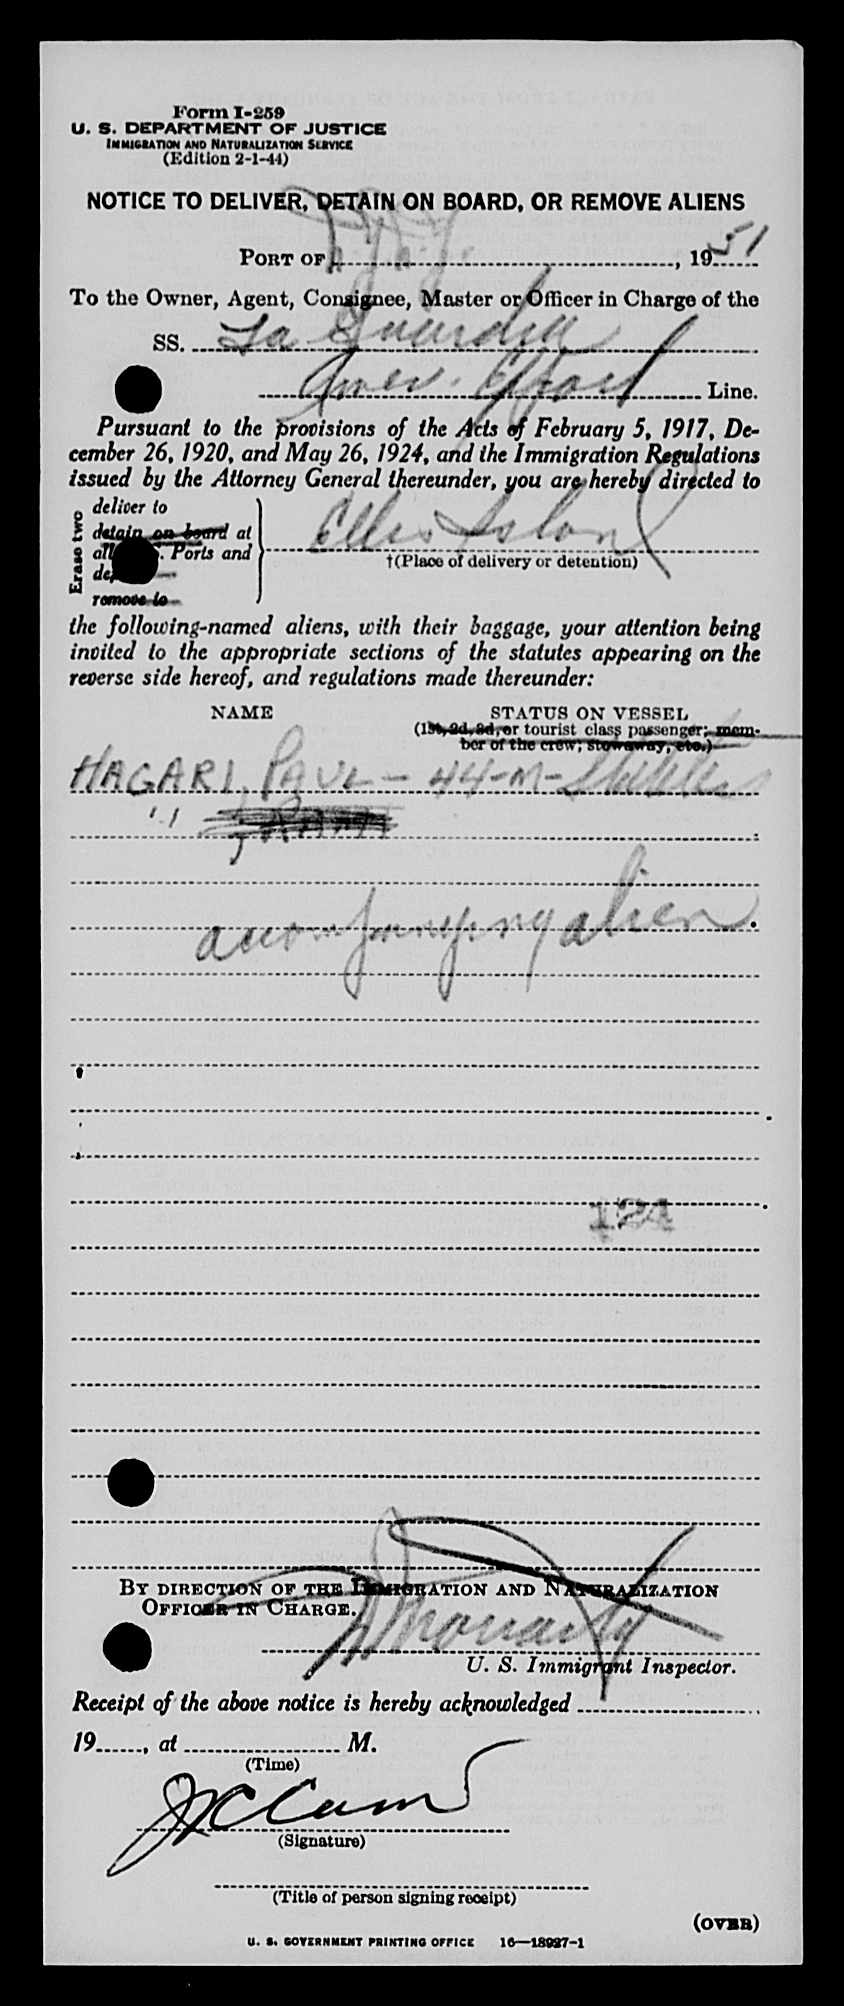 Form I-259
U. S. DEPARTMENT OF JUSTICE
IMMIGRATION AND NATURALIZATION SERVICE
(Edition 2-1-44)
NOTICE TO DELIVER, DETAIN ON BOARD, OR REMOVE ALIENS
PORT OF N.Y., 1951
To the Owner, Agent, Consignee, Master or Officer in Charge of the
SS. La Guardia
Amer. Export Line.
Pursuant to the provisions of the Acts of February 5, 1917, De-
cember 26, 1920, and May 26, 1924, and the Immigration Regulations
issued by the Attorney General thereunder, you are hereby directed to
Erase two
deliver to
detain on board at
all Ports and
remove to
Ellis Island
†(Place of delivery or detention)
the following-named aliens, with their baggage, your attention being
invited to the appropriate sections of the statutes appearing on the
reverse side hereof, and regulations made thereunder:
NAME STATUS ON VESSEL
(1st, 2d, 3d, or tourist class passenger; mem-
ber of the crew; stowaway, etc.)
HAGARI, PAUL - 44-M-
accompanying alien.
124
BY DIRECTION OF THE IMMIGRATION AND NATURALIZATION
OFFICER IN CHARGE.
Moriarty
U. S. Immigrant Inspector.
Receipt of the above notice is hereby acknowledged
19, at M.
(Time)
(Signature)
(Title of person signing receipt)
(OVER)
U. S. GOVERNMENT PRINTING OFFICE 16—18927-1